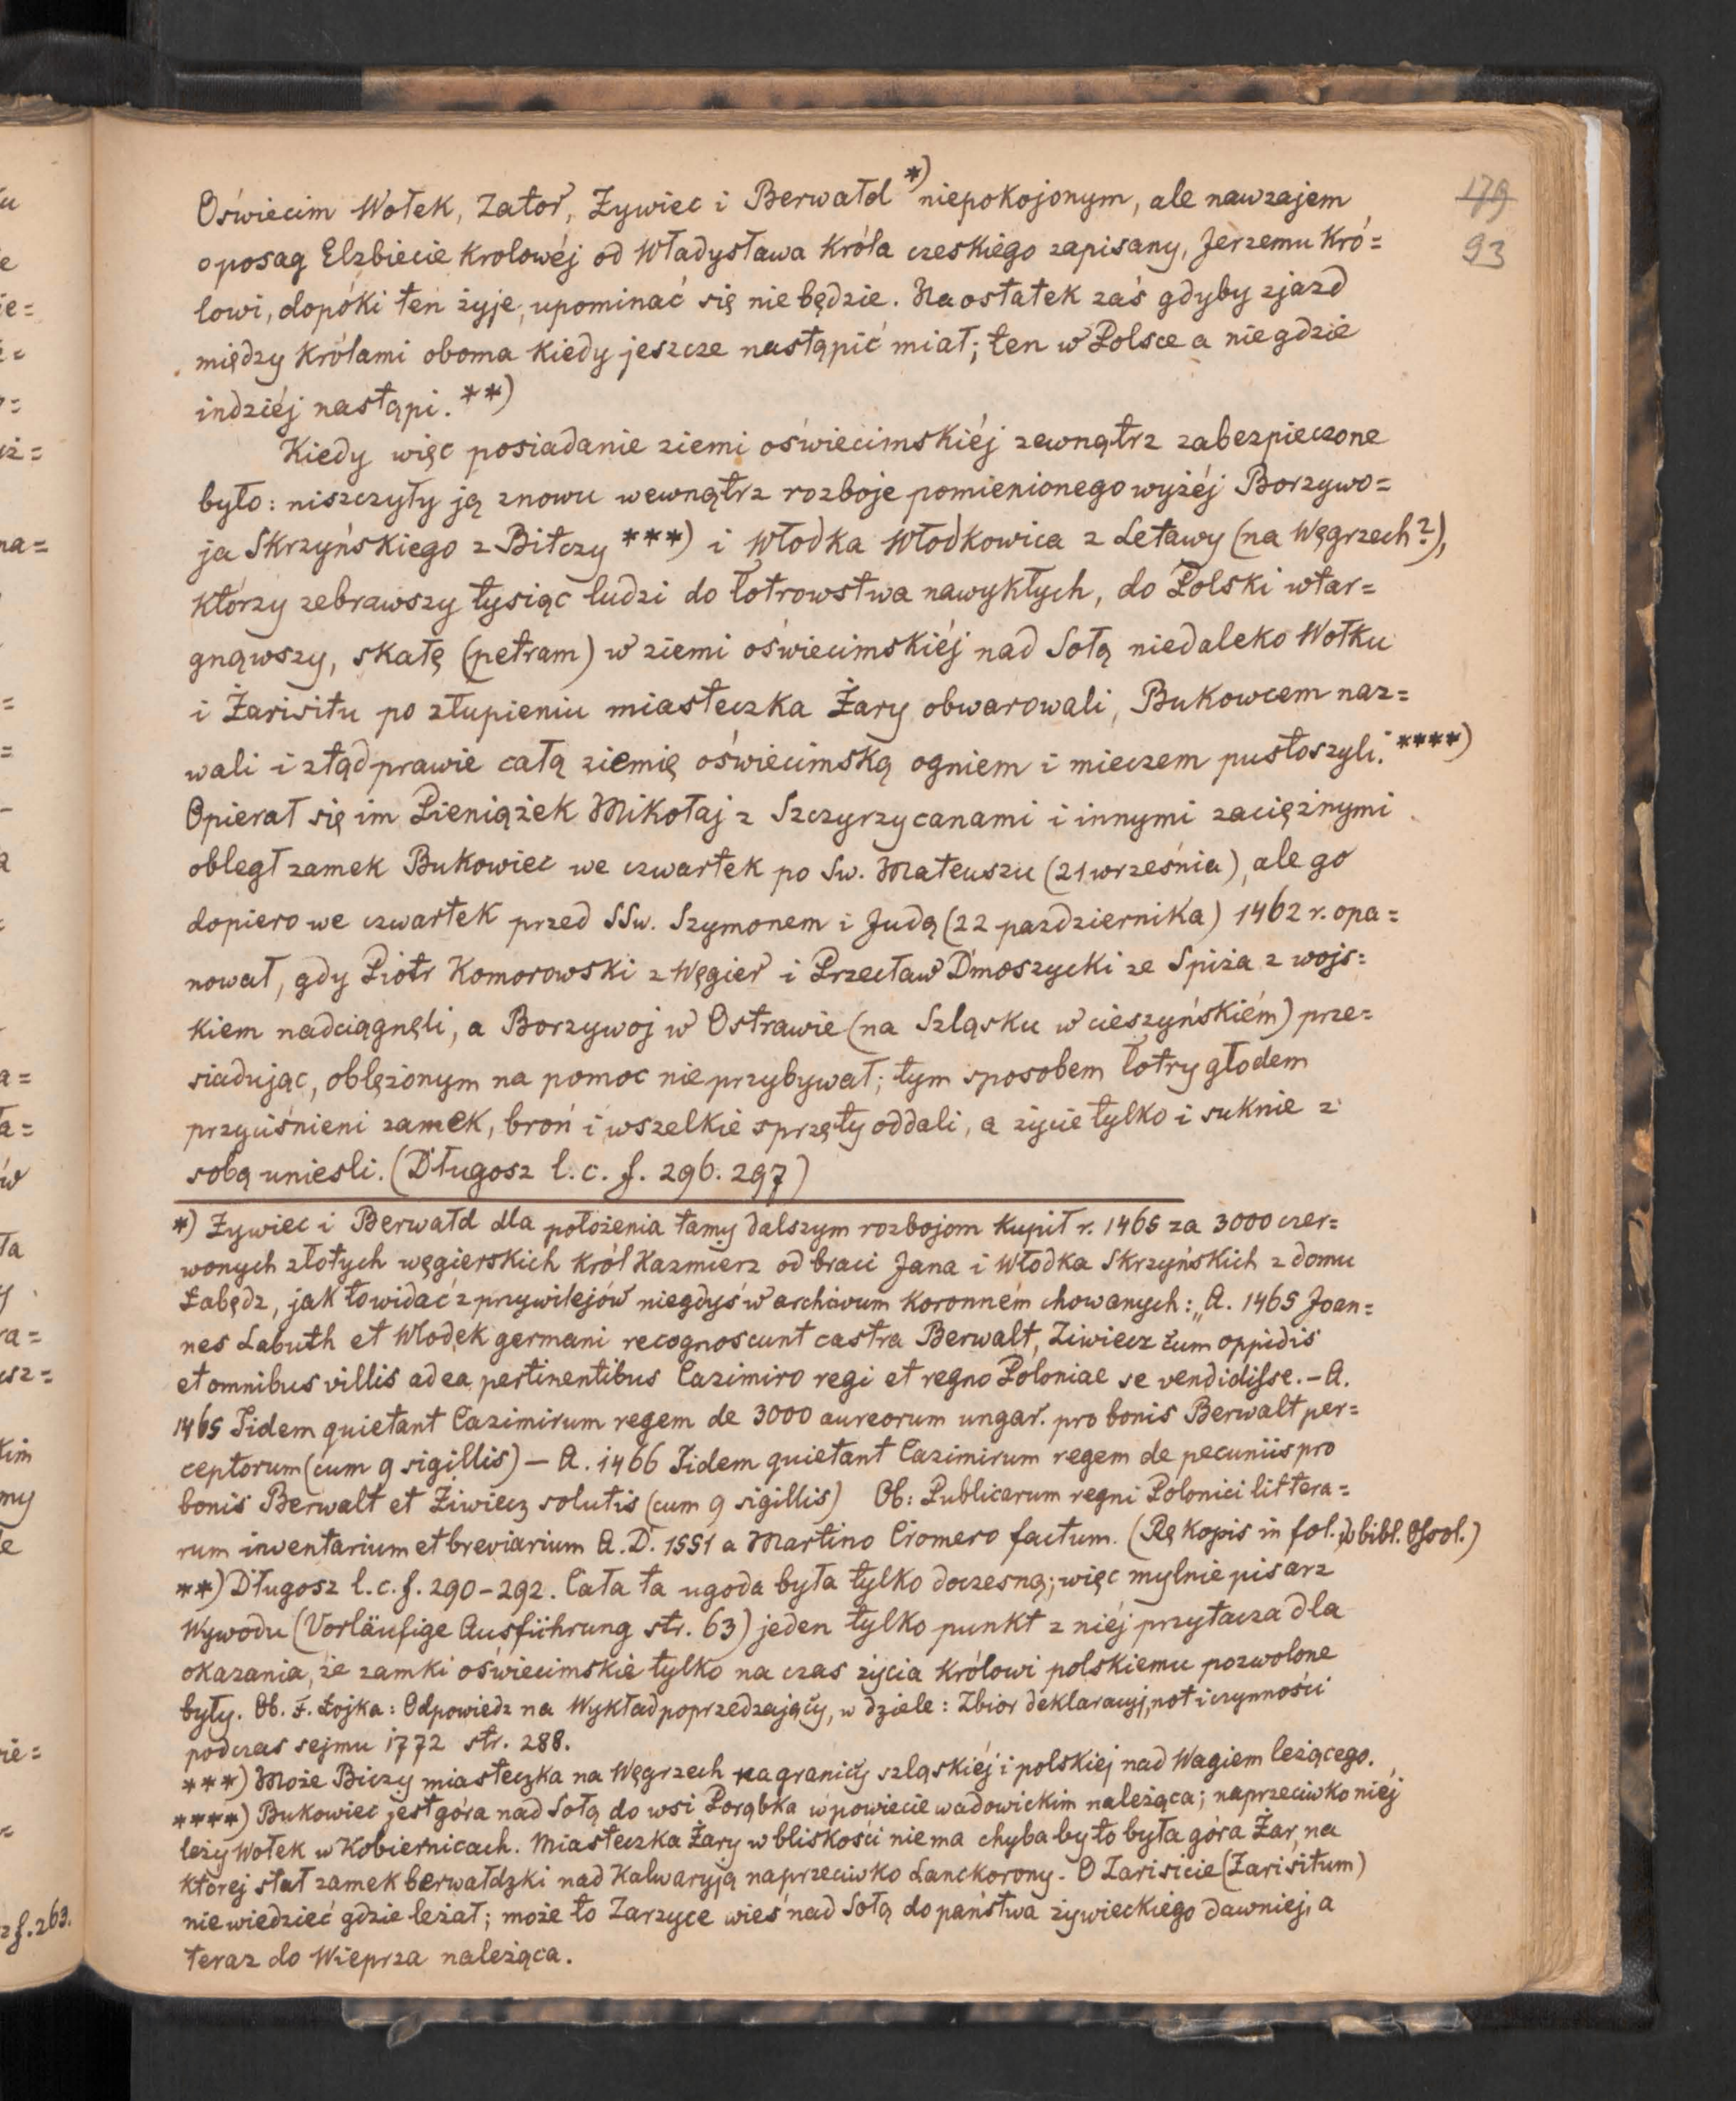 179
93
Oświecim Wołek, Zator, Żywiec i Berwałd *) niepokojonym, ale nawzajem
o posag Elzbiecie Krolowéj od Władysława Króla czeskiego zapisany, Jerzemu Kró=
lowi, dopóki ten żyje, upominać się nie będzie. Na ostatek zaś gdyby zjazd
między Królami oboma Kiedy jeszcze nastąpić miał; ten w Polsce a nie gdzie
indziéj nastąpi. **)
Kiedy więc posiadanie ziemi oświecimskiéj zewnątrz zabezpieczone
było: niszczyły ją znowu wewnątrz rozboje pomienionego wyżéj Borzywo=
ja Skrzyńskiego z Bitczy ***) i Włodka Włodkowica z Letawy (na Węgrzech?),
którzy zebrawszy tysiąc ludzi do łotrowstwa nawykłych, do Polski wtar=
gnąwszy, skałę (petram) w ziemi oświecimskiéj nad Sołą niedaleko Wołku
i Żarisitu po złupieniu miasteczka Żary obwarowali, Bukowcem naz=
wali i ztąd prawie całą ziemię oświecimską ogniem i mieczem pustoszyli. ****)
Opierał się im Pieniążek Mikołaj z Szczyrzycanami i innymi zaciężnymi
obległ zamek Bukowiec we czwartek po Sw. Mateuszu (21 września), ale go
dopiero we czwartek przed SSw. Szymonem i Judą (22 pazdziernika) 1462 r. opa=
nował, gdy Piotr Komorowski z Węgier i Przecław Dmoszycki ze Spiża z wojs=
kiem nadciągnęli, a Borzywoj w Ostrawie (na Szląsku w cieszyńskiém) prze=
siadując, oblężonym na pomoc nie przybywał; tym sposobem łotry głodem
przyciśnieni zamek, broń i wszelkie sprzęty oddali, a życie tylko i suknie z
sobą uniesli. (Długosz l. c. f. 296. 297)
*) Żywiec i Berwałd dla położenia tamy dalszym rozbojom Kupił r. 1465 za 3000 czer=
wonych złotych węgierskich Król Kazmierz od braci Jana i Włodka Skrzyńskich z domu
Łabędz, jak to widać z przywilejów niegdyś w archivum Koronném chowanych: „A. 1465 Joan=
nes Labuth et Wlodek germani recognoscunt castra Berwalt, Ziwiecz cum oppidis
et omnibus villis ad ea pertinentibus Cazimiro regi et regno Poloniae se vendidisse. – A.
1465 Iidem quietant Cazimirum regem de 3000 aureorum ungar. pro bonis Berwalt per=
ceptorum (cum 9 sigillis) — A. 1466 Iidem quietant Cazimirum regem de pecuniis pro
bonis Berwalt et Ziwiecz solutis (cum 9 sigillis) Ob: Publicarum regni Polonici littera=
rum inventarium et breviarium A. D. 1551 a Martino Cromero factum. (Rękopis in fol. w bibl. Ossol.)
**) Długosz l. c. f. 290–292. Cała ta ugoda była tylko doczesną; więc mylnie pisarz
Wywodu (Vorläufige Ausführung str. 63) jeden tylko punkt z niéj przytacza dla
okazania, że zamki oświecimskie tylko na czas życia Królowi polskiemu pozwolone
były. Ob. F. Łojka: Odpowiedz na Wykład poprzedzający, w dziele: Zbior deklaracyj, not i czynności
podczas sejmu 1772 str. 288.
***) Może Biczy miasteczka na Węgrzech na granicy szląskiéj i polskiej nad Wagiem leżącego.
****) Bukowiec jest góra nad Sołą do wsi Porąbka w powiecie wadowickim należąca; naprzeciwko niéj
leży Wołek w Kobiernicach. Miasteczka Żary w bliskości nie ma chyba by to była góra Żar, na
której stał zamek berwałdzki nad Kalwaryją naprzeciwko Lanckorony. O Zarisicie (Zarisitum)
nie wiedzieć gdzie leżał; może to Zarzyce wieś nad Sołą do państwa żywieckiego dawniej, a
teraz do Wieprza należąca.